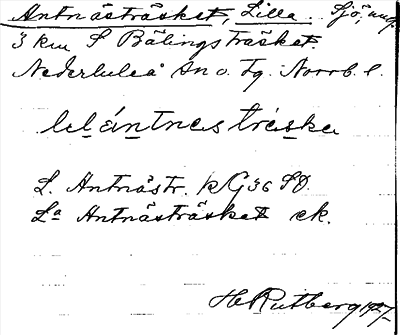 Antnästräsket, Lilla. Sjö, ung.
3 km S Bälingsträsket.
Nederluleå sn o. tg. Norrb. l.
lɩlántnes trȧska
L. Antnästr. kG36 SO.
La Antnästräsket ek.
H Rutberg 1927